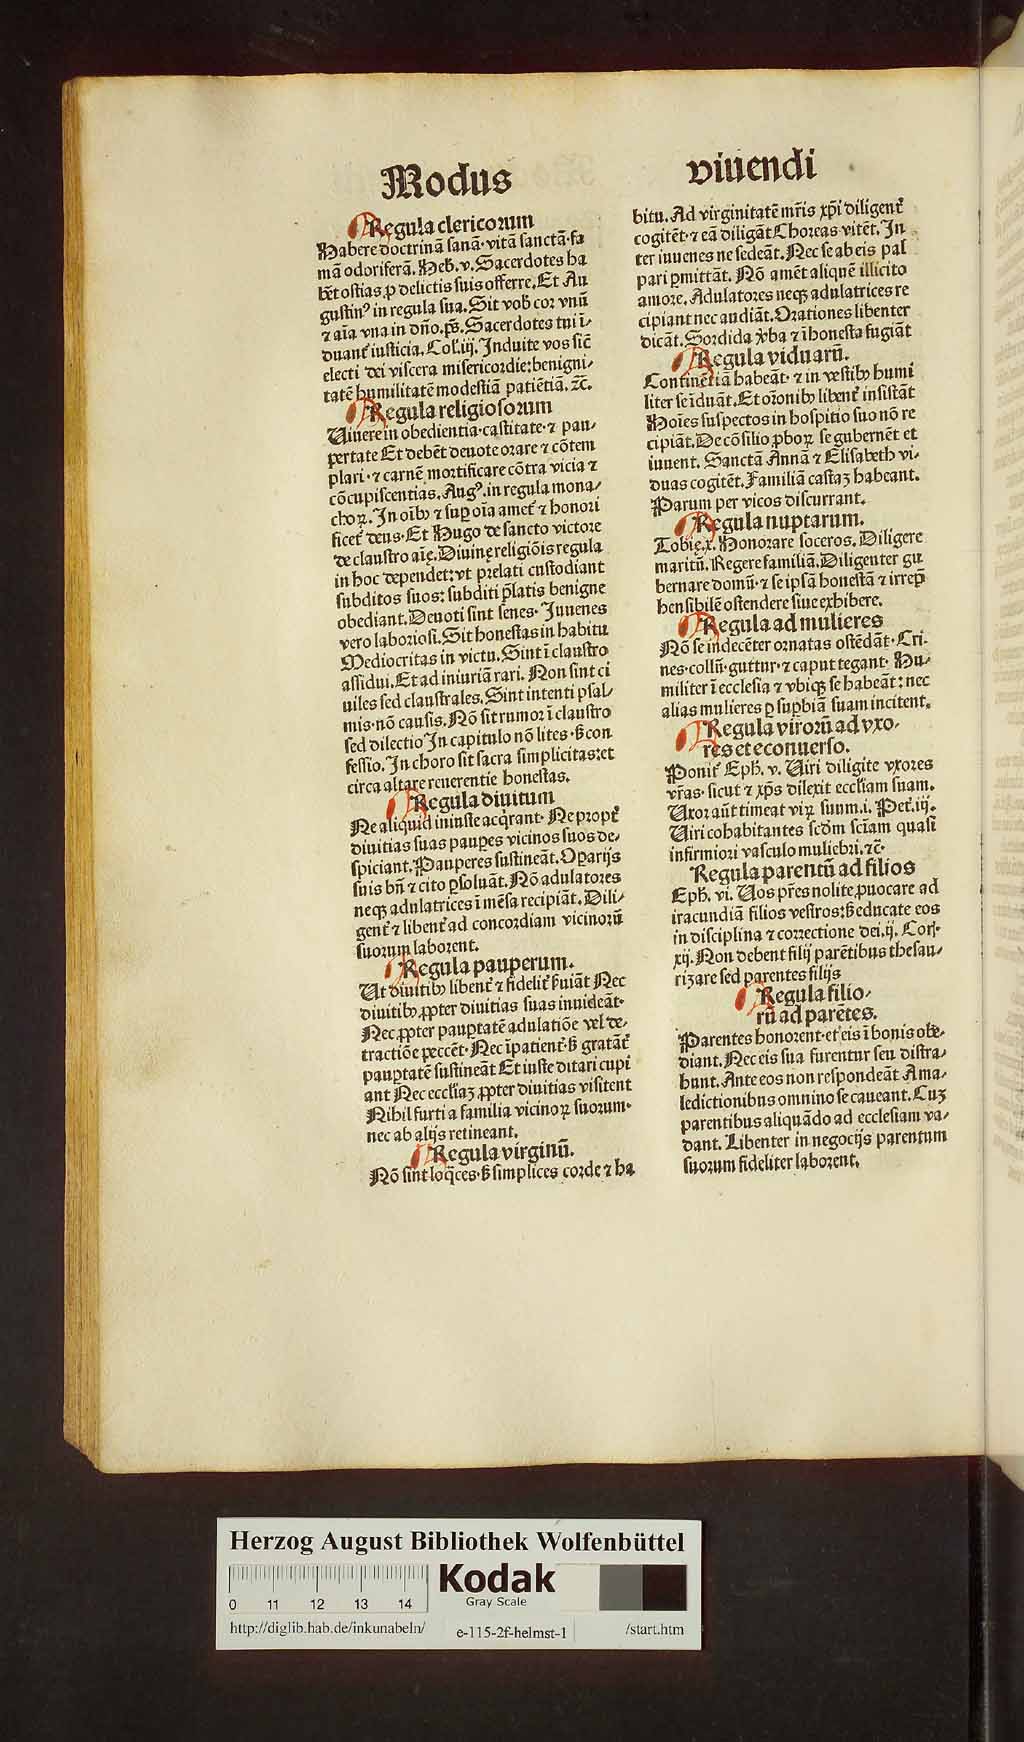 Modus
Regula clericorum
Habere doctrinã sanã· vitã sanctã· fa
mã odoriferã. Heb. v. Sacerdotes ha
bẽt ostias ꝓ delictis suis offerre. Et Au
gustinꝰ in regula sua. Sit vob̃ cor vnũ
⁊ aĩa vna in dño. ps̃. Sacerdotes tui ĩ-
duant᷑ iusticia. Col̃. iij. Induite vos sič
electi dei viscera misericordie: benigni-
tatẽ humilitatẽ modestiã patiẽtiã. ⁊c̃.
Regula religiosorum
Uiuere in obedientia· castitate· ⁊ pau-
pertate Et debẽt deuote orare ⁊ cõtem
plari· ⁊ carnẽ mortificare cõtra vicia ⁊
cõcupiscentias. Augꝰ. in regula mona-
choꝝ. In oĩbꝫ ⁊ suꝑ oĩa amet᷑ ⁊ honori
ficet᷑ deus· Et Hugo de sancto victore
de claustro aĩę. Diuinę religiõis regula
in hoc dependet: vt prelati custodiant
subditos suos: subditi p̃latis benigne
obediant. Deuoti sint senes· Iuuenes
vero laboriosi. Sit honestas in habitu
Mediocritas in victu. Sint ĩ claustro
assidui. Et ad iniuriã rari. Non sint ci
uiles sed claustrales. Sint intenti psal-
mis· nõ causis. Nõ sit rumor ĩ claustro
sed dilectio In capitulo nõ lites· ß con
fessio. In choro sit sacra simplicitas: et
circa altare reuerentie honestas.
Regula diuitum
Ne aliquid iniuste acq̃rant· Ne propt᷑
diuitias suas pauꝑes vicinos suos de-
spiciant. Pauperes sustineãt. Oꝑarijs
suis bñ ⁊ cito ꝑsoluãt. Nõ adulatores
neqꝫ adulatrices ĩ mẽsa recipiãt. Dili-
gent᷑ ⁊ libent᷑ ad concordiam vicinorũ
suorum laborent.
Regula pauperum.
Ut diuitibꝫ libent᷑ ⁊ fidelit᷑ ßuiãt Nec
diuitibꝫ ꝓpter diuitias suas inuideãt·
Nec ꝓpter pauꝑtatẽ adulatiõe vel de-
tractiõe peccẽt· Nec ĩpatient᷑· ß gratãt᷑
pauꝑtatẽ sustineãt Et iuste ditari cupi
ant Nec eccl̃iaꝫ ꝓpter diuitias visitent
Nihil furti a familia vicinoꝝ suorum·
nec ab alijs retineant.
Regula virginũ.
Nõ sint loq̃ces· ß simplices corde ⁊ ha
viuendi
bitu. Ad virginitatẽ mr̃is xp̃i diligent᷑
cogitẽt· ⁊ eã diligãt Choreas vitẽt. In
ter iuuenes ne sedeãt. Nec se ab eis pal
pari ꝑmittãt. Nõ amẽt aliquẽ illicito
amore. Adulatores neqꝫ adulatrices re
cipiant nec audiãt. Orationes libenter
dicãt. Sordida v̾ba ⁊ ĩhonesta fugiãt
Regula viduarũ.
Continẽtiã habeãt· ⁊ in vestibꝫ humi
liter se ĩduãt. Et orõnibꝫ libent᷑ insistãt
Hoĩes suspectos in hospitio suo nõ re
cipiãt. De cõsilio ꝓboꝝ se gubernẽt et
iuuent. Sanctã Annã ⁊ Elisabeth vi-
duas cogitẽt. Familiã castaꝫ habeant.
Parum per vicos discurrant.
Regula nuptarum.
Tobię. x. Honorare soceros. Diligere
maritũ. Regere familiã. Diligenter gu
bernare domũ· ⁊ se ipsã honestã ⁊ irrep̃
hensibilẽ ostendere siue exhibere.
Regula ad mulieres
Nõ se indecẽter ornatas ostẽdãt· Cri-
nes· collũ· guttur· ⁊ caput tegant· Hu-
militer ĩ ecclesia ⁊ vbiqꝫ se habeãt: nec
alias mulieres ꝑ suꝑbiã suam incitent.
Regula virorũ ad vxo-
res et econuerso.
Ponit᷑ Eph. v. Uiri diligite vxores
vr̃as· sicut ⁊ xp̃s dilexit eccl̃iam suam.
Uxor aũt timeat viꝝ suum. i. Pet᷑. iij.
Uiri cohabitantes scd̃m sciam quasi
infirmiori vasculo muliebri. ⁊c̃·
Regula parentũ ad filios
Eph. vi. Uos pr̃es nolite ꝓuocare ad
iracundiã filios vestros: ß educate eos
in disciplina ⁊ correctione dei. ij. Corĩ·
xij. Non debent filij parẽtibus thesau-
rizare sed parentes filijs
Regula filio-
rũ ad parẽtes.
Parentes honorent· et eis ĩ bonis obe-
diant. Nec eis sua furentur seu distra-
hunt. Ante eos non respondeãt A ma-
ledictionibus omnino se caueant. Cuꝫ
parentibus aliquãdo ad ecclesiam va-
dant. Libenter in negocijs parentum
suorum fideliter laborent.
Herzog August Bibliothek Wolfenbüttel
Kodak
Gray Scale
0 11 12 13 14
http://diglib.hab.de/inkunabeln/ e-115-2f-helmst-1 /start.htm